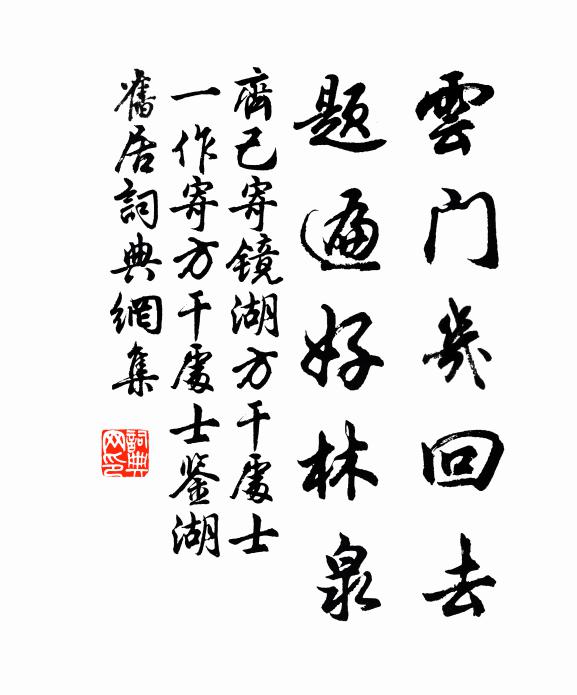 雲门幾回去
题遍好林泉
齊己寄镜湖方干處士
一作寄方干處士鉴湖
舊居詞典網集
詞典网印